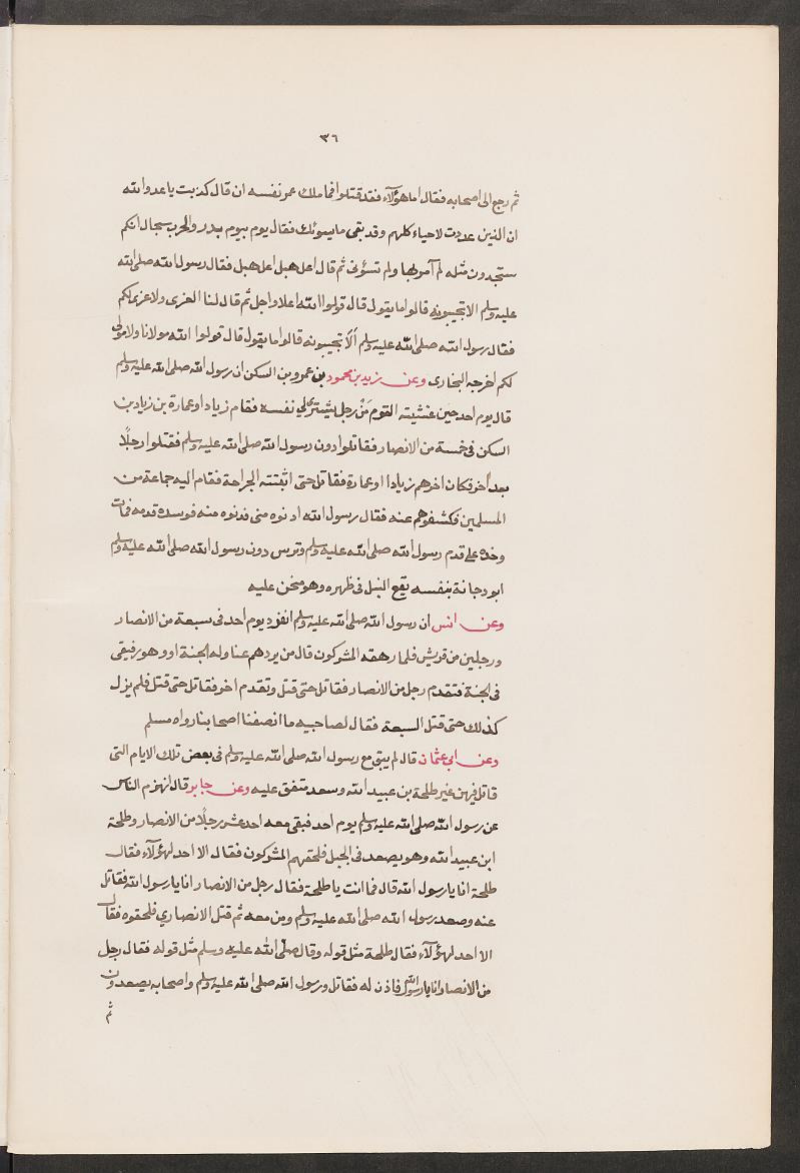 ٣٦
ثم رجع الى اصحابه فقال اما هؤلآء فقد قتلوا فما ملك عمر نفسه ان قال كذبت يا عدو الله
ان الذين عددت لاحياء كلهم وقد بقى ما يسوئك فقال يوم بيوم بدر والحرب سجال انكم
ستجدون مثله لم آمر بها ولم تسؤنى ثم قال اعل هبل اعل هبل فقال رسول الله صلى الله
عليه وسلم الا تجيبونه قالوا ما يقول قال قولوا الله اعلا واجل ثم قال لنا العزى ولا عزى لكم
فقال رسول الله صلى الله عليه وسلم ألا تجيبونه قالوا ما يقول قال قولوا الله مولانا ولا مولى
لكم اخرجه البخارى وعن زيد بن محمود بن عمرو بن السكن ان رسول الله صلى الله عليه وسلم
قال يوم احد حين غشيته القوم مَنْ رجل يشترى لى نفسه فقام زياد او عمارة بن زياد بن
السكن فى خمسة من الانصار فقاتلوا دون رسول الله صلى الله عليه وسلم فقتلوا رجلًا
بعد أخر فكان اخرهم زيادا او عمارة فقاتل حتى اثبتته الجراحة فقام اليه جماعة من
المسلمين فكشفوهم عنه فقال رسول الله ادنوه منى فدنوه منه فوسده قدمه فمات
وخده على قدم رسول الله صلى الله عليه وسلم وترس دون رسول الله صلى الله عليه وسلم
ابو دجانة بنفسه يقع النبل فى ظهره وهو منحن عليه
وعن انس ان رسول الله صلى الله عليه وسلم انفرد يوم احد فى سبعة من الانصار
ورجلين من قريش فلما رهقه المشركون قال من يردهم عنا وله الجنة او وهو رفيقى
فى الجنة فتقدم رجل من الانصار فقاتل حتى قتل وتقدم اخر فقاتل حتى قتل فلم يزل
كذلك حتى قتل السبعة فقال لصاحبيه ما انصفنا اصحابنا رواه مسلم
وعن ابى عثمان قال لم يبق مع رسول الله صلى الله عليه وسلم فى بعض تلك الايام التى
قاتل فيهن غير طلحة بن عبيد الله وسعد متفق عليه وعن جابر قال انهزم الناس
عن رسول الله صلى الله عليه وسلم يوم احد فبقى معه احد عشر رجلًا من الانصار وطلحة
ابن عبيد الله وهو يصعد فى الجبل فلحقهم المشركون فقال الا احد لهؤلآء فقال
طلحة انا يا رسول الله قال فما انت يا طلحة فقال رجل من الانصار انا يا رسول الله فقاتل
عنه وصعد رسول الله صلى الله عليه وسلم ومن معه ثم قتل الانصاري فلحقوه فقال
الا احد لهؤلآء فقال طلحة مثل قوله وقال صلى الله عليه وسلم مثل قوله فقال رجل
من الانصار انا يا رسول الله فاذن له فقاتل ورسول الله صلى الله عليه وسلم واصحابه يصعدون
ثم